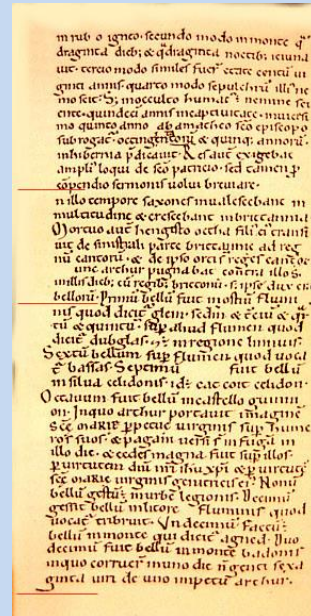 in rub o igneo. secundo modo in monte q̃
draginta dieb; & q̃draginta noctib; ieiuna
uit. tercio modo similes fuer̃ etate centũ ui
ginti annis. quarto modo sepulchrũ illiꝰ ne
mo scit. S; in occulto humatꝰ nemine sci
ente. quindeci annis in captiuitate. in uicesi
mo quinto anno ab amatheo sc̃o episcopo
subrogat. octingentorũ & quinq; annorũ
in hibernia p̃dicauit. Res aut̃ exigebat
ampliꝰ loqui de sc̃o patricio. sed tamen ꝓ
cõpendio sermonis uolui breuiare.
n illo tempore saxones inualescebant in
multitudine & crescebant in brittannia
Mortuo aut̃ hengisto octha filiꝰ eiꝰ transi
uit de sinistrali parte brittannie ad reg
nũ cantorũ & de ipso orti s̃t reges cantorũ
unc arthur pugnabat contra illos.
in illis dieb; cũ regib; brittonũ. s; ipse dux erat
bellorũ. Primũ bellũ fuit in ostiũ flumi
nis quod dicit̃ glein. sed̃m & t̃ciũ & qr̃
tũ & quintũ. suꝑ aliud flumen quod
dicit̃ dubglas. & ẽ in regione linnuis.
Sextũ bellum suꝑ flumen quod uocat̃
bassas. Septimũ fuit bellũ
in silua celidonis. id ẽ cat coit celidon.
Octauum fuit bellũ in castello guinni
on. In quo arthur portauit imaginẽ
Sc̃e MARIE ꝑpetue uirginis suꝑ hume
ros suos. & pagani uersi s̃t in fugã in
illo die. & cedes magna fuit suꝑ illos.
ꝑ uirtutem dñi nr̃i ihũ xp̃i & ꝑ uirtutẽ
sc̃e MARIE uirginis genitricis eiꝰ. Nonũ
bellũ gestũ ẽ in urbe legionis. Decimũ
gessit bellũ in litore fluminis quod
uocat̃ tribruit. Vndecimũ factũ ẽ
bellũ in monte qui dicit̃ agned. Duo
decimũ fuit bellũ in monte badonis
in quo corruer̃ in uno die nongenti sexa
ginta uiri de uno impetu arthur.